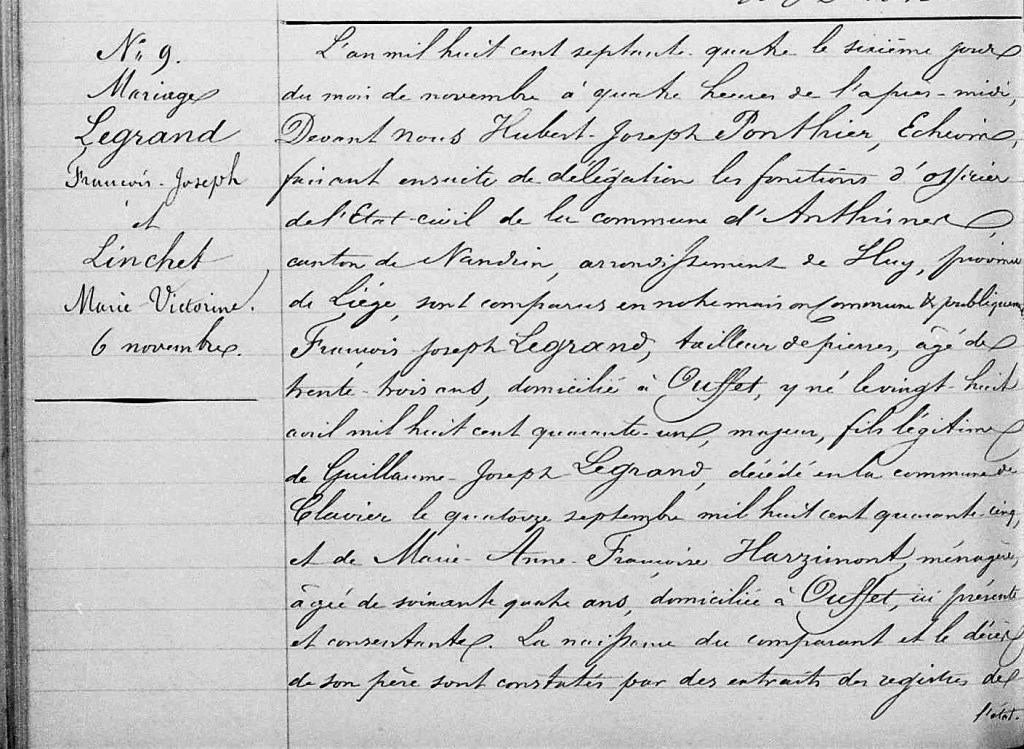 N° 9.
Mariage
Legrand
François-Joseph
et
Linchet
Marie Victorine.
6 novembre.
L'an mil huit cent septante-quatre le sixième jour
du mois de novembre à quatre heures de l'après-midi,
Devant nous Hubert-Joseph Ponthier, Echevin,
faisant ensuite de délégation les fonctions d'officier
de l'Etat-civil de la commune d'Anthisnes,
canton de Nandrin, arrondissement de Huy, province
de Liége, sont comparus en notre maison Commune & publiquem
François Joseph Legrand, tailleur de pierres, âgé de
trente-trois ans, domicilié à Ouffet, y né le vingt-huit
avril mil huit cent quarante-un, majeur, fils légitime
de Guillaume-Joseph Legrand, décédé en la commune de
Clavier le quatorze septembre mil huit cent quarante-cinq,
et de Marie-Anne-Françoise Harzimont, ménagère,
âgée de soixante quatre ans, domiciliée à Ouffet, ici présente
et consentante. La naissance du comparant et le décès
de son père sont constatés par des extraits des registres de
l'état.